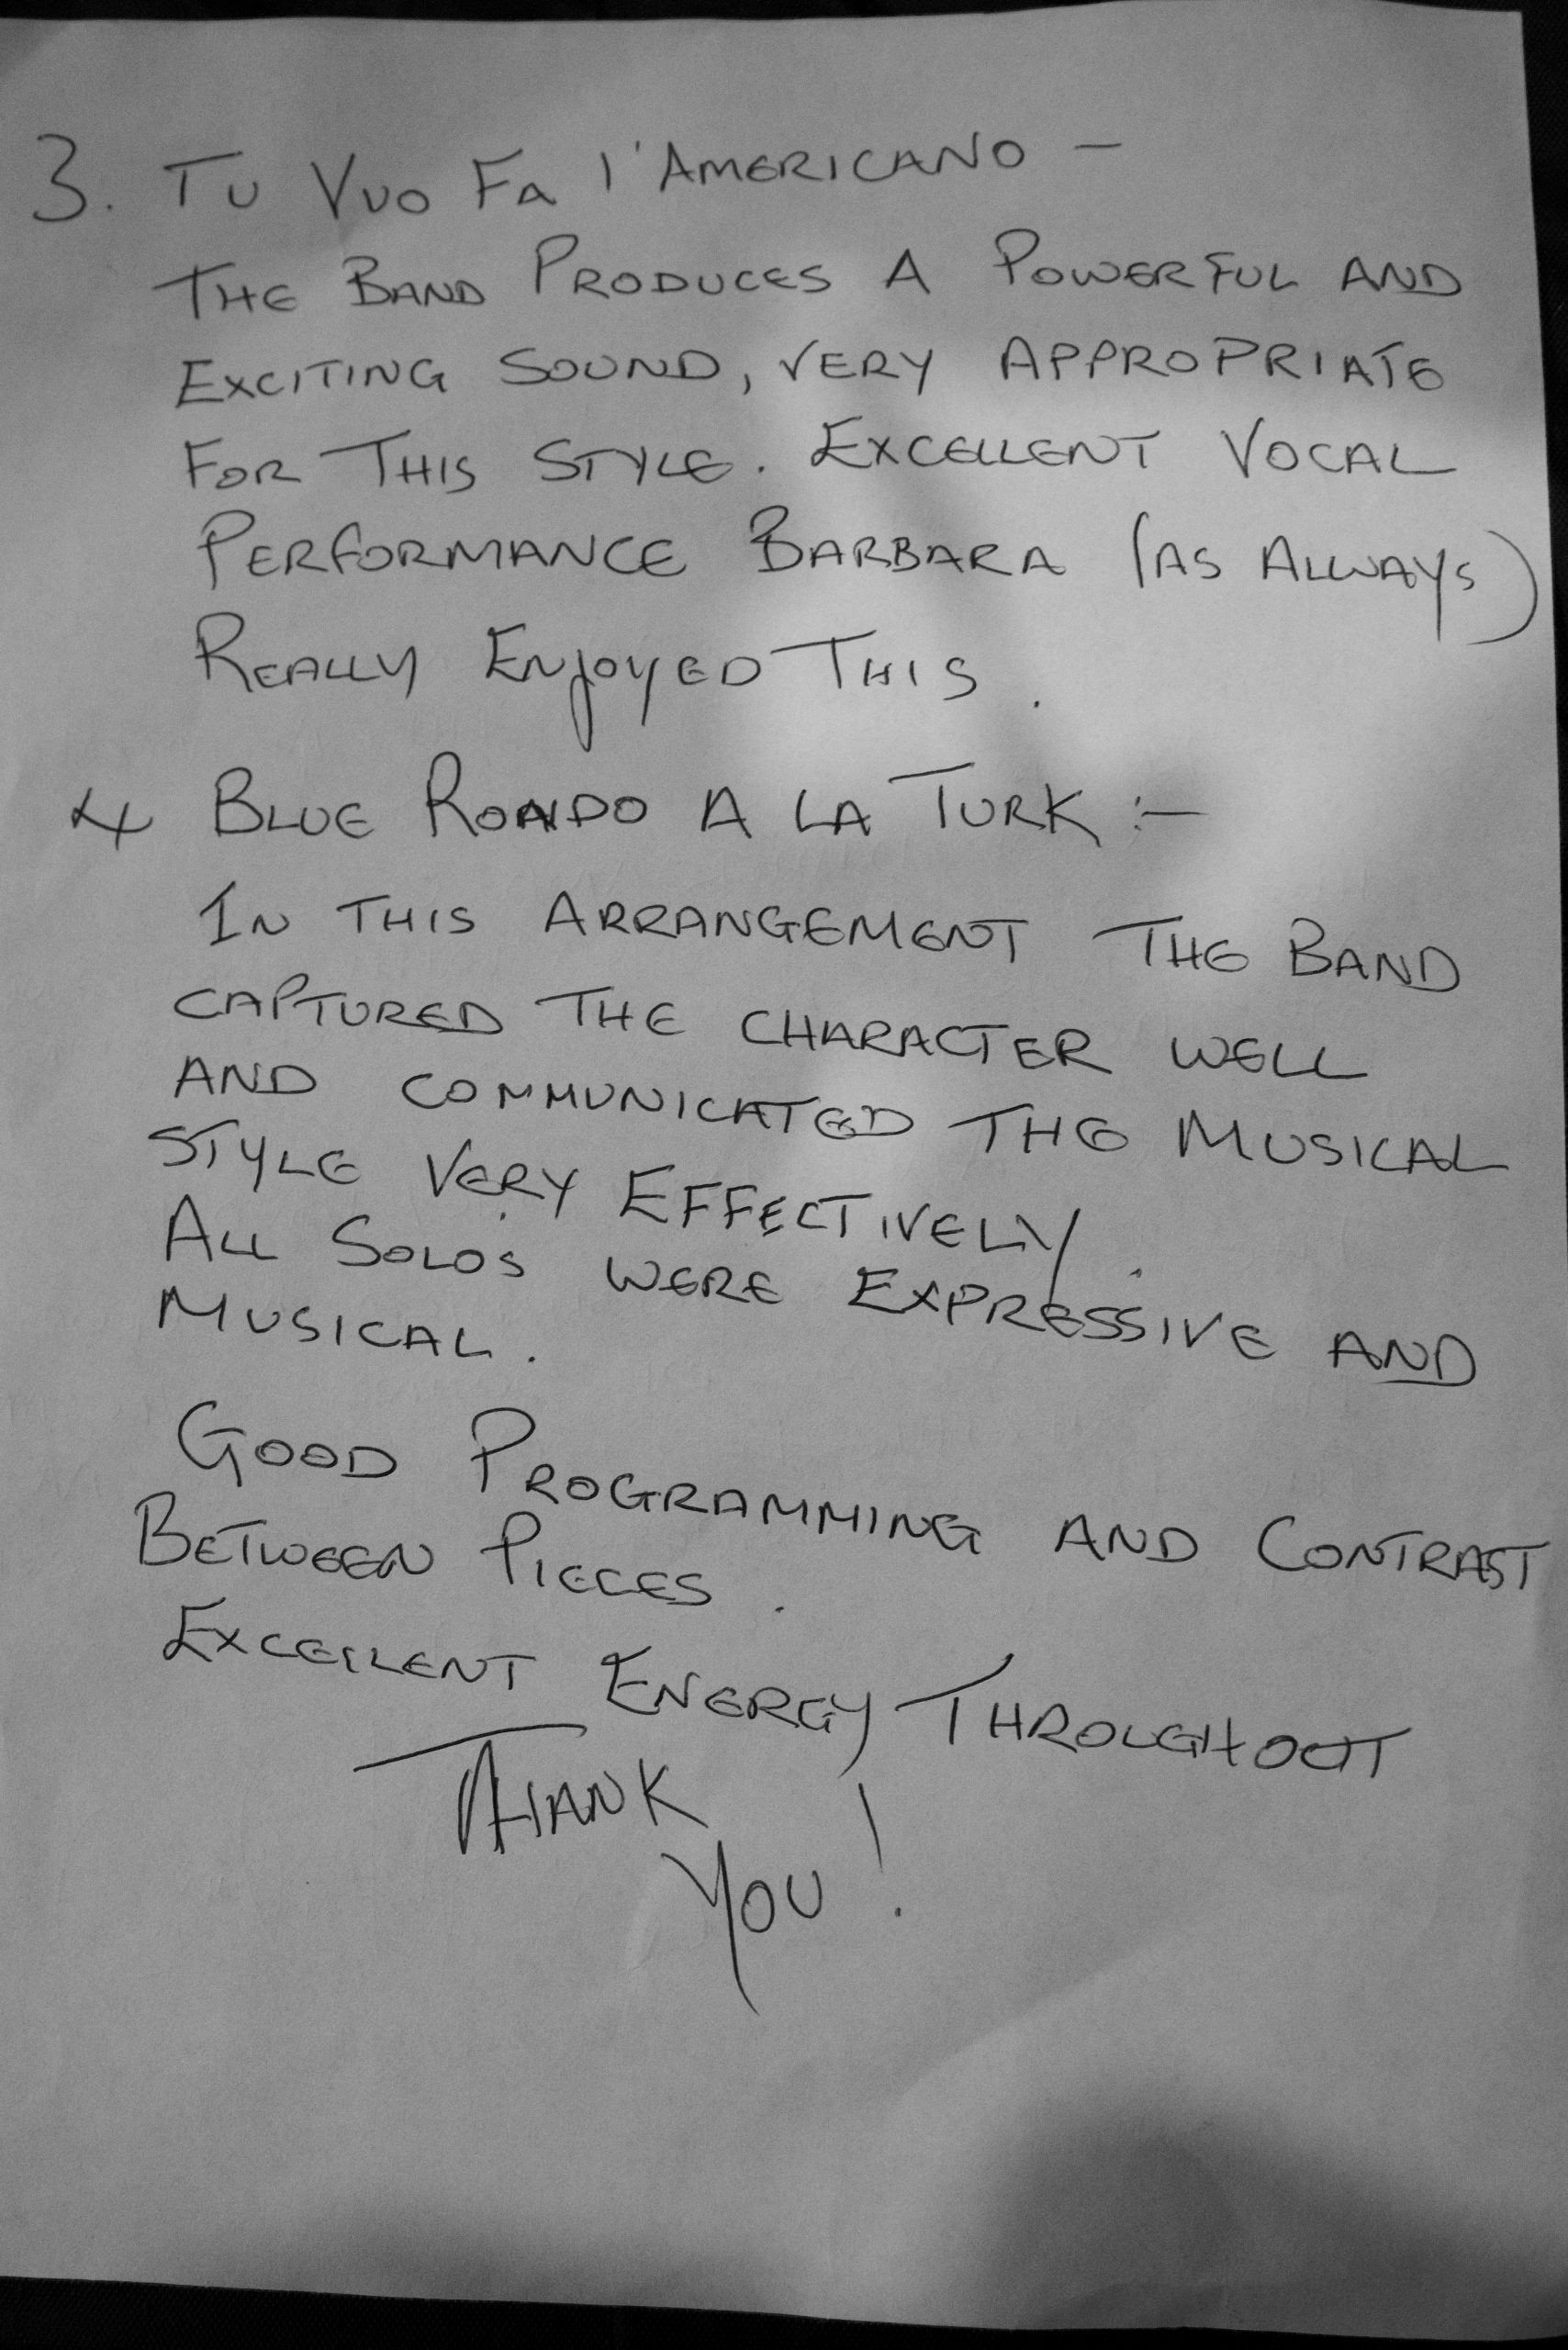 3. Tu Vuo Fa l'Americano -
The Band Produces A Powerful and
Exciting Sound, very appropriate
For This Style. Excellent Vocal
Performance Barbara (as Allways)
Really Enjoyed This.
4 Blue Rondo A La Turk :-
In this Arrangement The Band
captured the character well
and communicated the Musical
Style Very Effectively.
All Solo's were Expressive and
Musical.
Good Programming and Contrast
Between Pieces.
Excellent Energy Throughout
Thank
You!